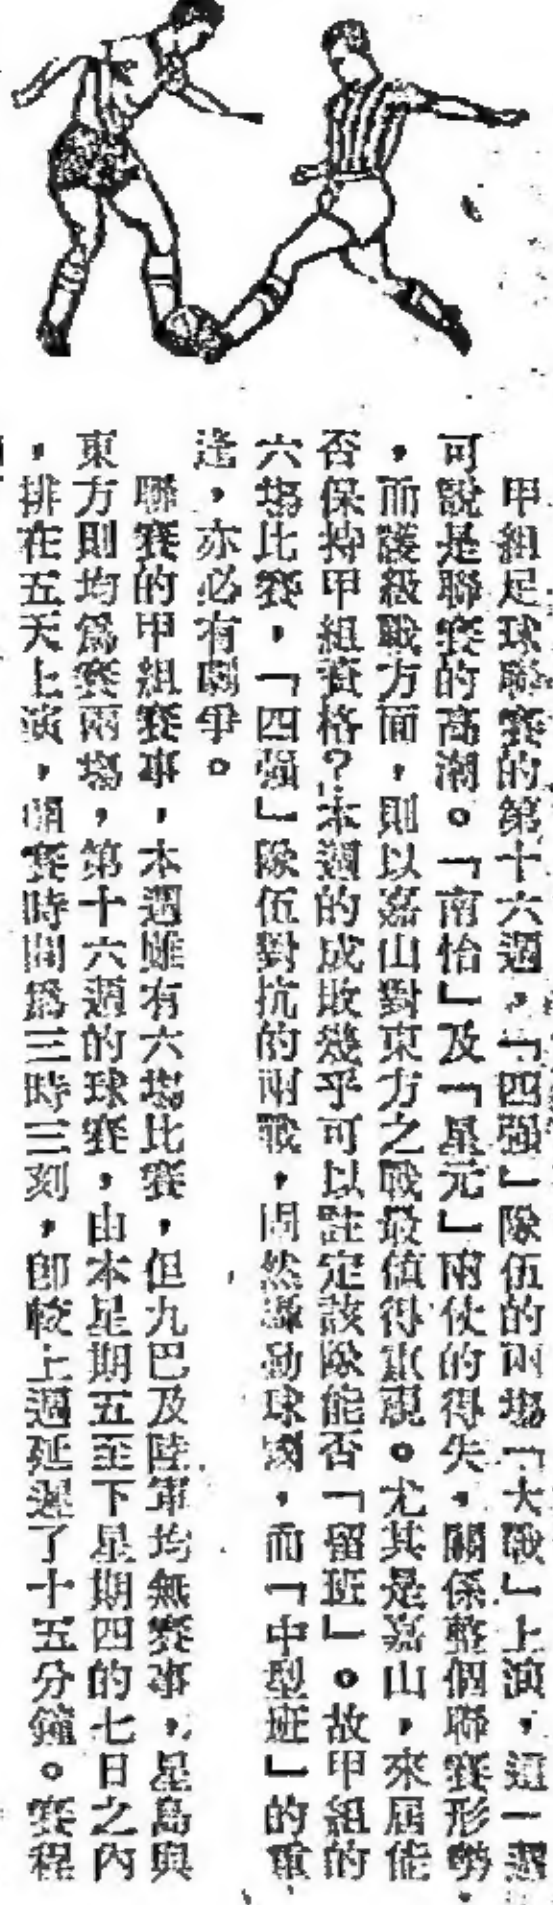 甲組足球聯賽的第十六週，「四强」隊伍的兩場「大戰」上演，這一週
可說是聯賽的高潮。「南怡」及「星元」兩仗的得失，關係整個聯賽形勢
，而護級戰方面，則以嘉山對東方之戰最值得重視。尤其是嘉山，來屆能
否保持甲組資格？本週的成敗幾乎可以註定該隊能否「留班」。故甲組的
六場比賽，「四强」隊伍對抗的兩戰，固然轟動球國，而「中型班」的重
逢，亦必有劇爭。
聯賽的甲組賽事，本週雖有六場比賽，但九巴及陸軍均無賽事，星島與
東方則均爲賽兩場，第十六週的球賽，由本星期五至下星期四的七日之內
，排在五天上演，開賽時間爲三時三刻，卽較上週延遲了十五分鐘。賽程